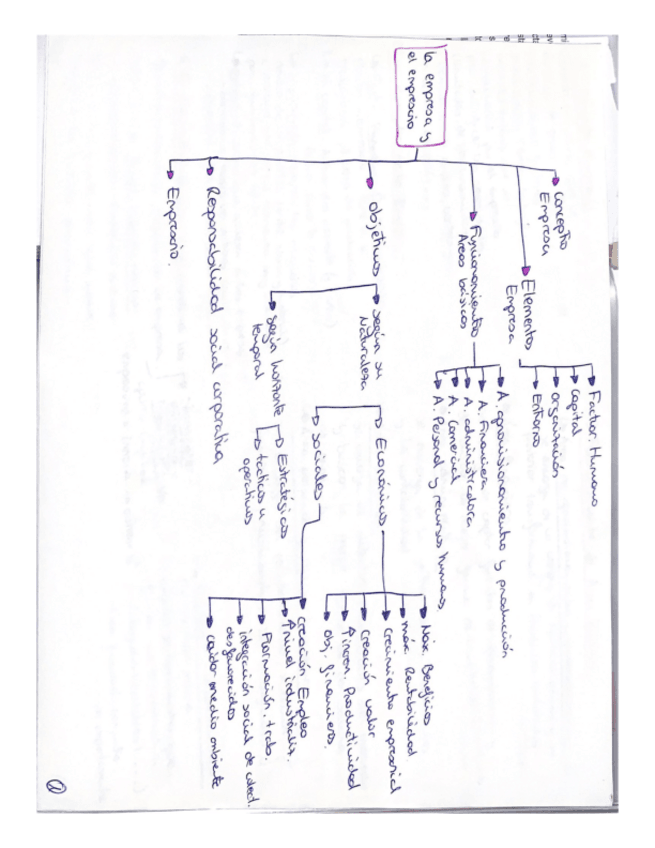 la empresa y
el empresario
Concepto
Empresa
Elementos
Empresa
Factor Humano
Capital
Organización
Entorno
Funcionamiento
Áreas básicas
A. aprovisionamiento y producción
A. Financiera
A. administradora
A. Comercial
A. Personal y recursos humanos
Objetivos
Según su
Naturaleza
Económicos
Máx. Beneficios
máx. Rentabilidad
Crecimiento empresarial
Creación valor
Productividad
obj. financieros.
Sociales
Creación Empleo
nivel industrializ.
Formación. trab.
integración social de
desfavorecidos
cuidar medio ambiente
Según horizonte
temporal
Estratégicos
tácticos u
operativos
Responsabilidad social corporativa
Empresario.
1